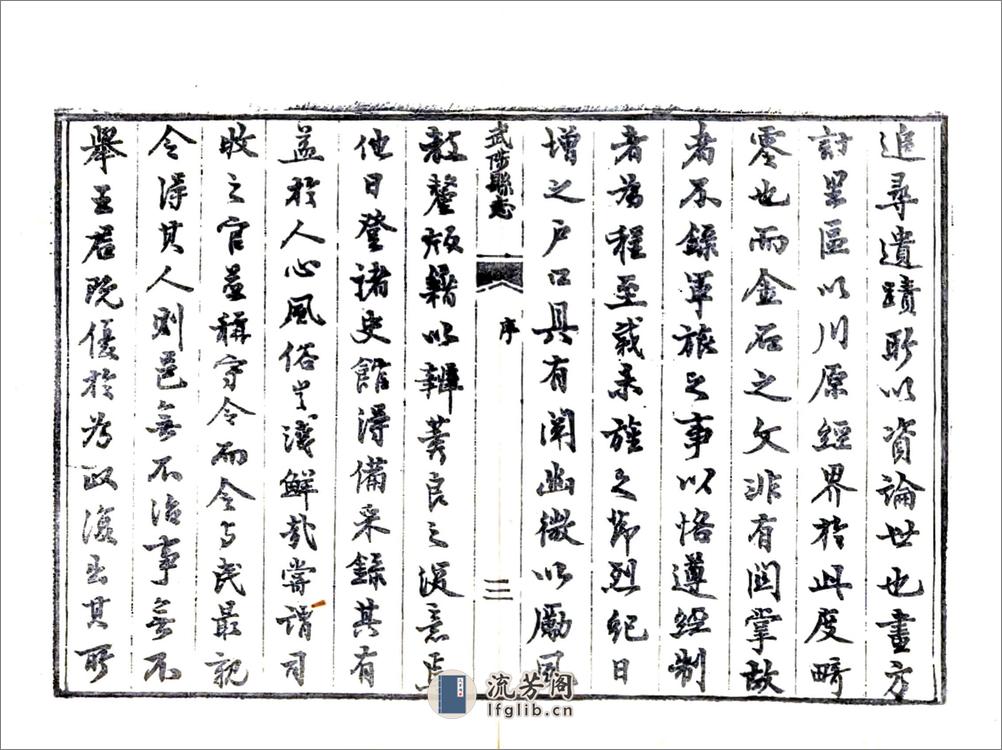 追尋遺蹟所以資論世也畫方
計里區以川原經界於此度畸
零也而金石之文非有關掌故
者不錄軍旅之事以恪遵經制
者為程至或未旌之節烈紀日
增之戶口具有闡幽微以勵風
武陟縣志
序
三
教釐版籍以辨莠良之深意焉
他日登諸史館得備采錄其有
益於人心風俗豈淺鮮哉嘗謂司
牧之官並稱守令而令与民最親
令得其人則邑無不治事無不
舉王君既優於為政復出其所
流芳阁
lfglib.cn